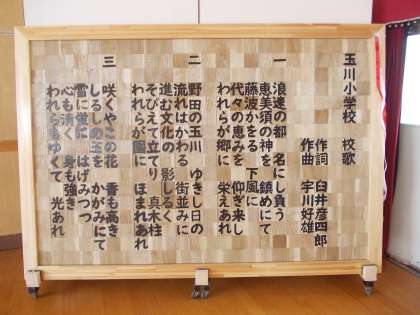 玉川小学校 校歌
作詞 臼井彦四郎
作曲 宇川好雄
一
浪速の都 名にし負う
恵美須の神を 鎮めにて
藤波かをる 下風に
代々の恵みを 仰ぎ来し
われらが郷に 栄えあれ
二
野田の玉川 ゆきし日の
流れはかわる 街並みに
進む文化の 影しるく
そびえて立てり 真木柱
われらが園に ほまれあれ
三
咲くやこの花 香も高き
しるしの玉を かがみにて
雪に蛍に はげみつつ
心も清く 身も強き
われらもゆくて 光あれ